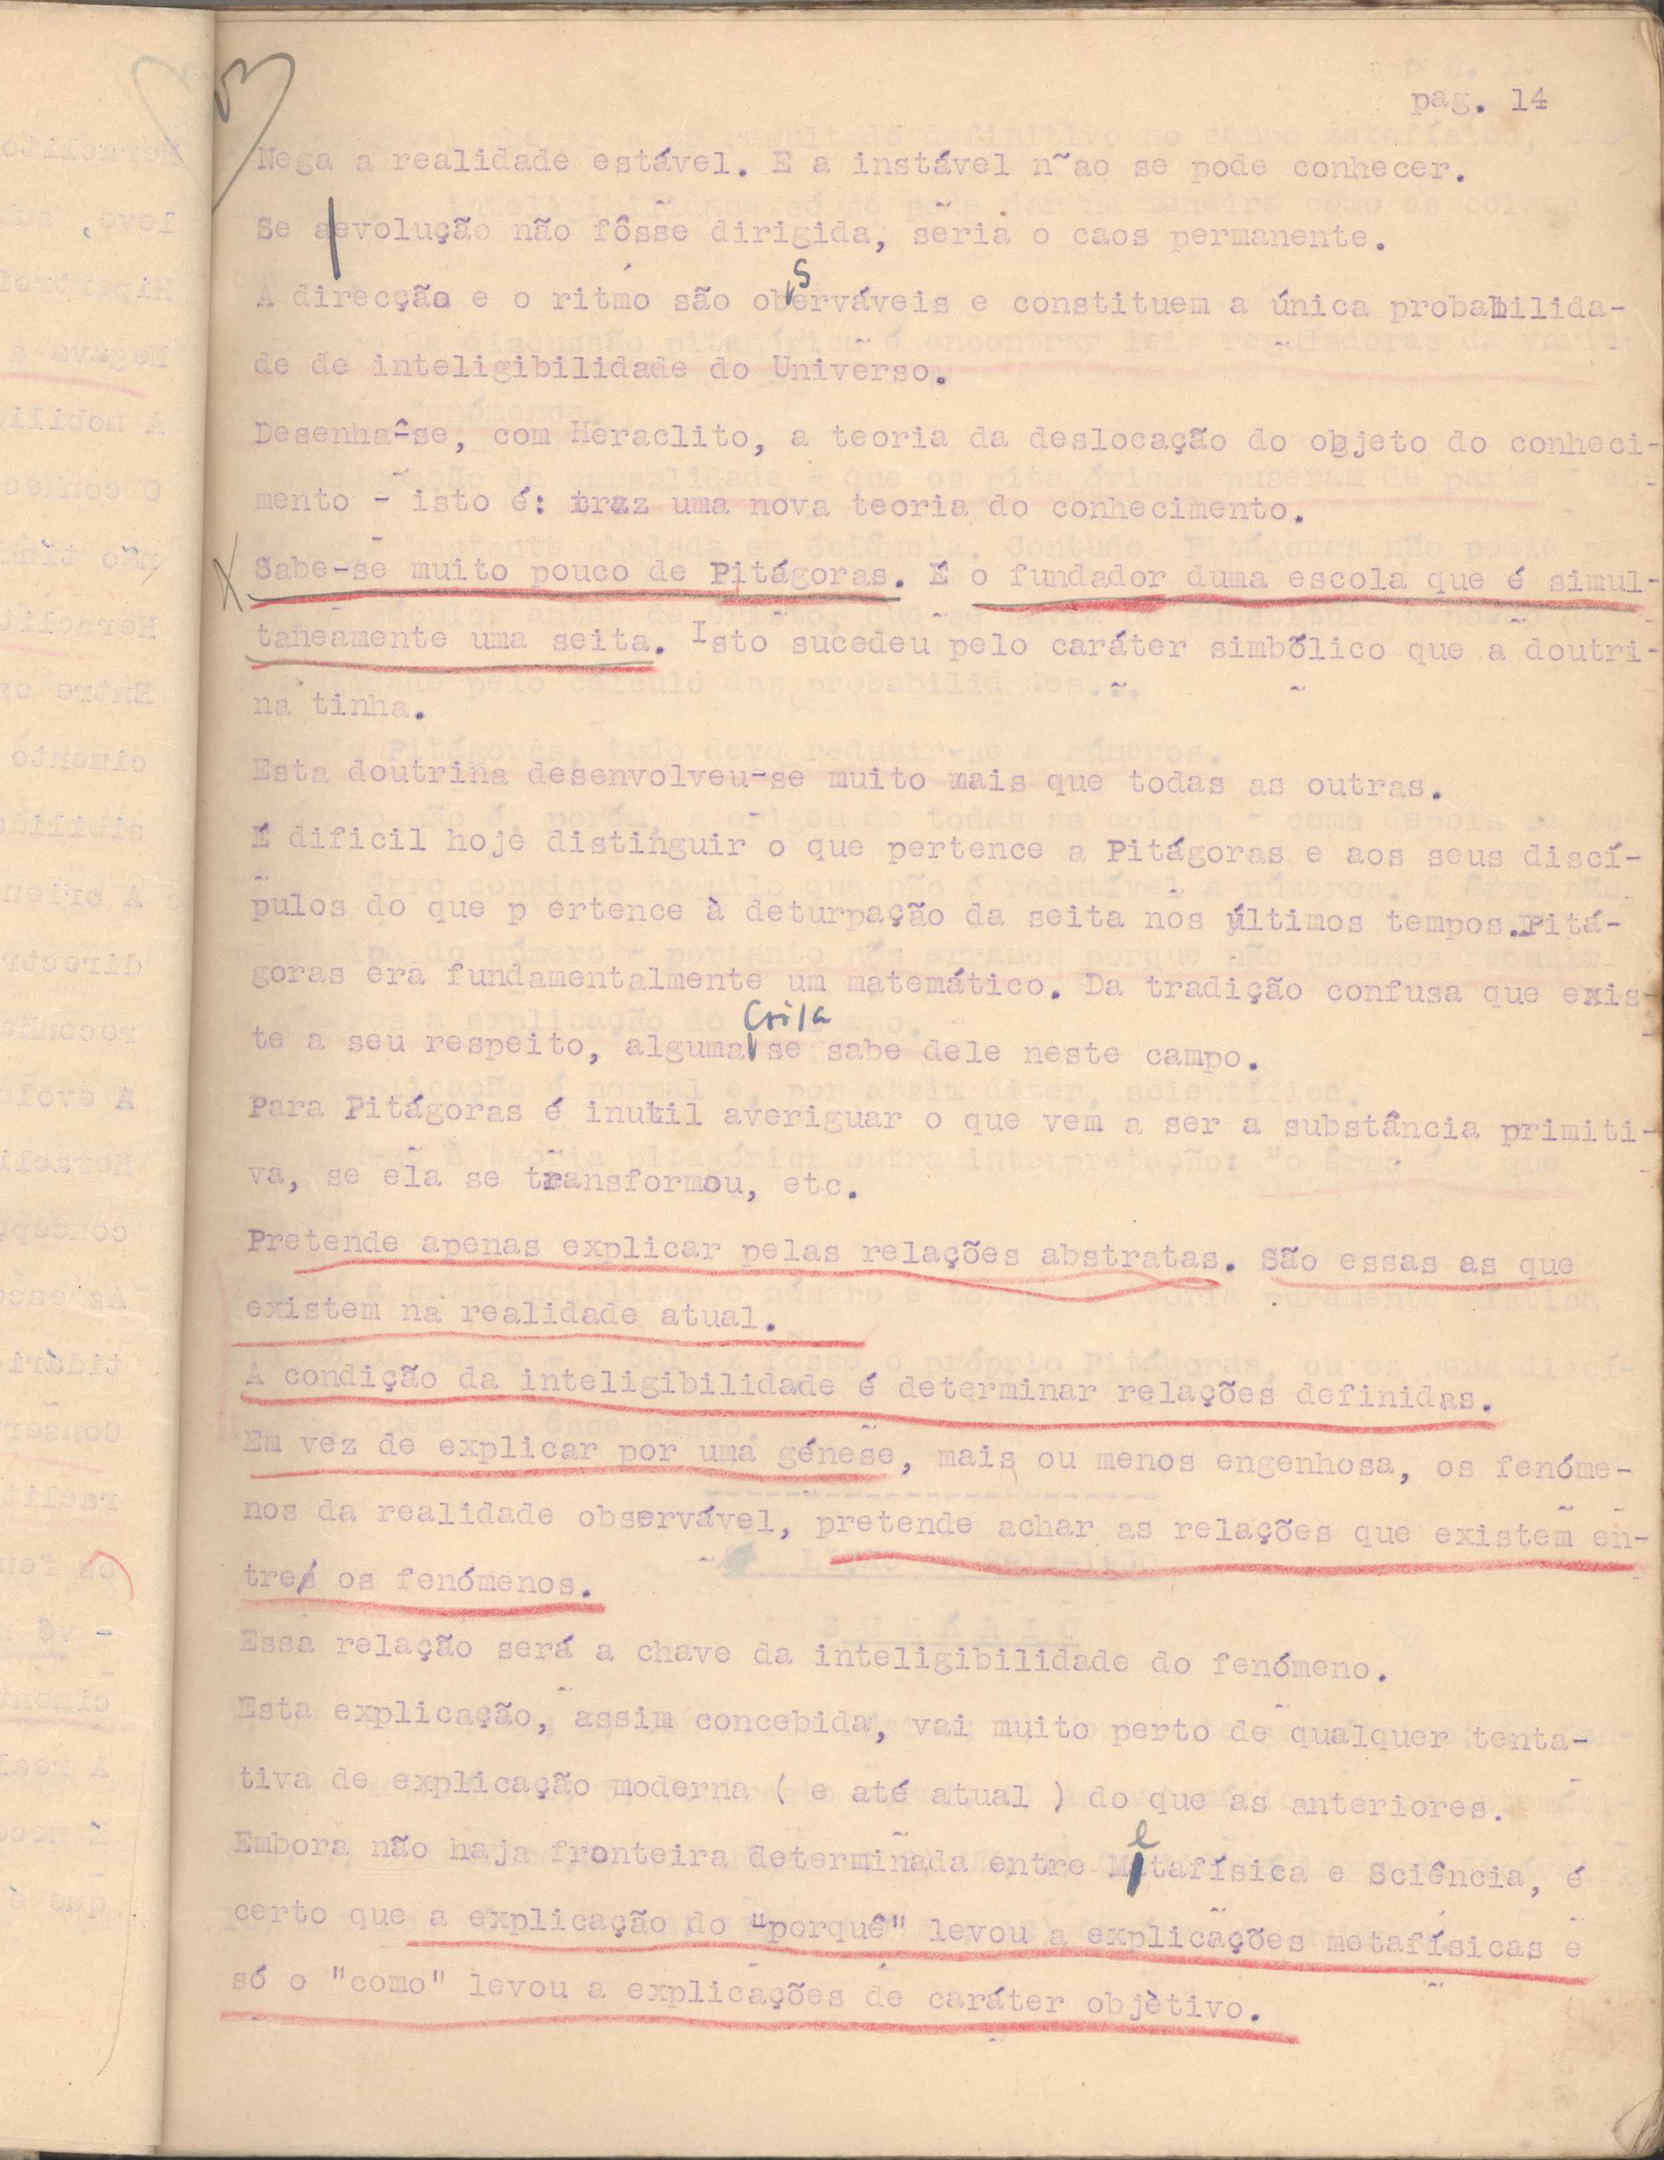 pag. 14
Nega a realidade estável. E a instável n~ao se pode conhecer.
Se a evolução não fôsse dirigida, seria o caos permanente.
A direcção e o ritmo são observáveis e constituem a única probabilida-
de de inteligibilidade do Universo.
Desenha-se, com Heraclito, a teoria da deslocação do objeto do conheci-
mento - isto é: traz uma nova teoria do conhecimento.
Sabe-se muito pouco de Pitágoras. É o fundador duma escola que é simul-
taneamente uma seita. Isto sucedeu pelo caráter simbólico que a doutri-
na tinha.
Esta doutrina desenvolveu-se muito mais que todas as outras.
É dificil hoje distinguir o que pertence a Pitágoras e aos seus discí-
pulos do que p ertence à deturpação da seita nos últimos tempos. Pitá-
goras era fundamentalmente um matemático. Da tradição confusa que exis-
te a seu respeito, alguma coisa se sabe dele neste campo.
Para Pitágoras é inutil averiguar o que vem a ser a substância primiti-
va, se ela se transformou, etc.
Pretende apenas explicar pelas relações abstratas. São essas as que
existem na realidade atual.
A condição da inteligibilidade é determinar relações definidas.
Em vez de explicar por uma génese, mais ou menos engenhosa, os fenóme-
nos da realidade observável, pretende achar as relações que existem en-
tre os fenómenos.
Essa relação será a chave da inteligibilidade do fenómeno.
Esta explicação, assim concebida, vai muito perto de qualquer tenta-
tiva de explicação moderna ( e até atual ) do que as anteriores.
Embora não haja fronteira determinada entre Metafísica e Sciência, é
certo que a explicação do "porquê" levou a explicações metafísicas e
só o "como" levou a explicações de caráter objètivo.